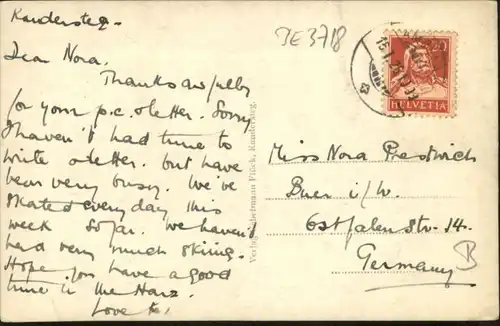 Kandersteg.
Dear Nora.
Thanks awfully
for your p.c. & letter. Sorry
I haven't had time to
write a letter. but have
been very busy. We've
skated every day this
week so far. We haven't
had very much skiing.
Hope you have a good
time in the Harz.
Love to,
Verlag Photohaus Flück, Kandersteg.
JE3718
15. I. 26
20
HELVETIA
Miss Nora Prestwich
Buer i/W.
Ostfalenstr. 14.
Germany
B